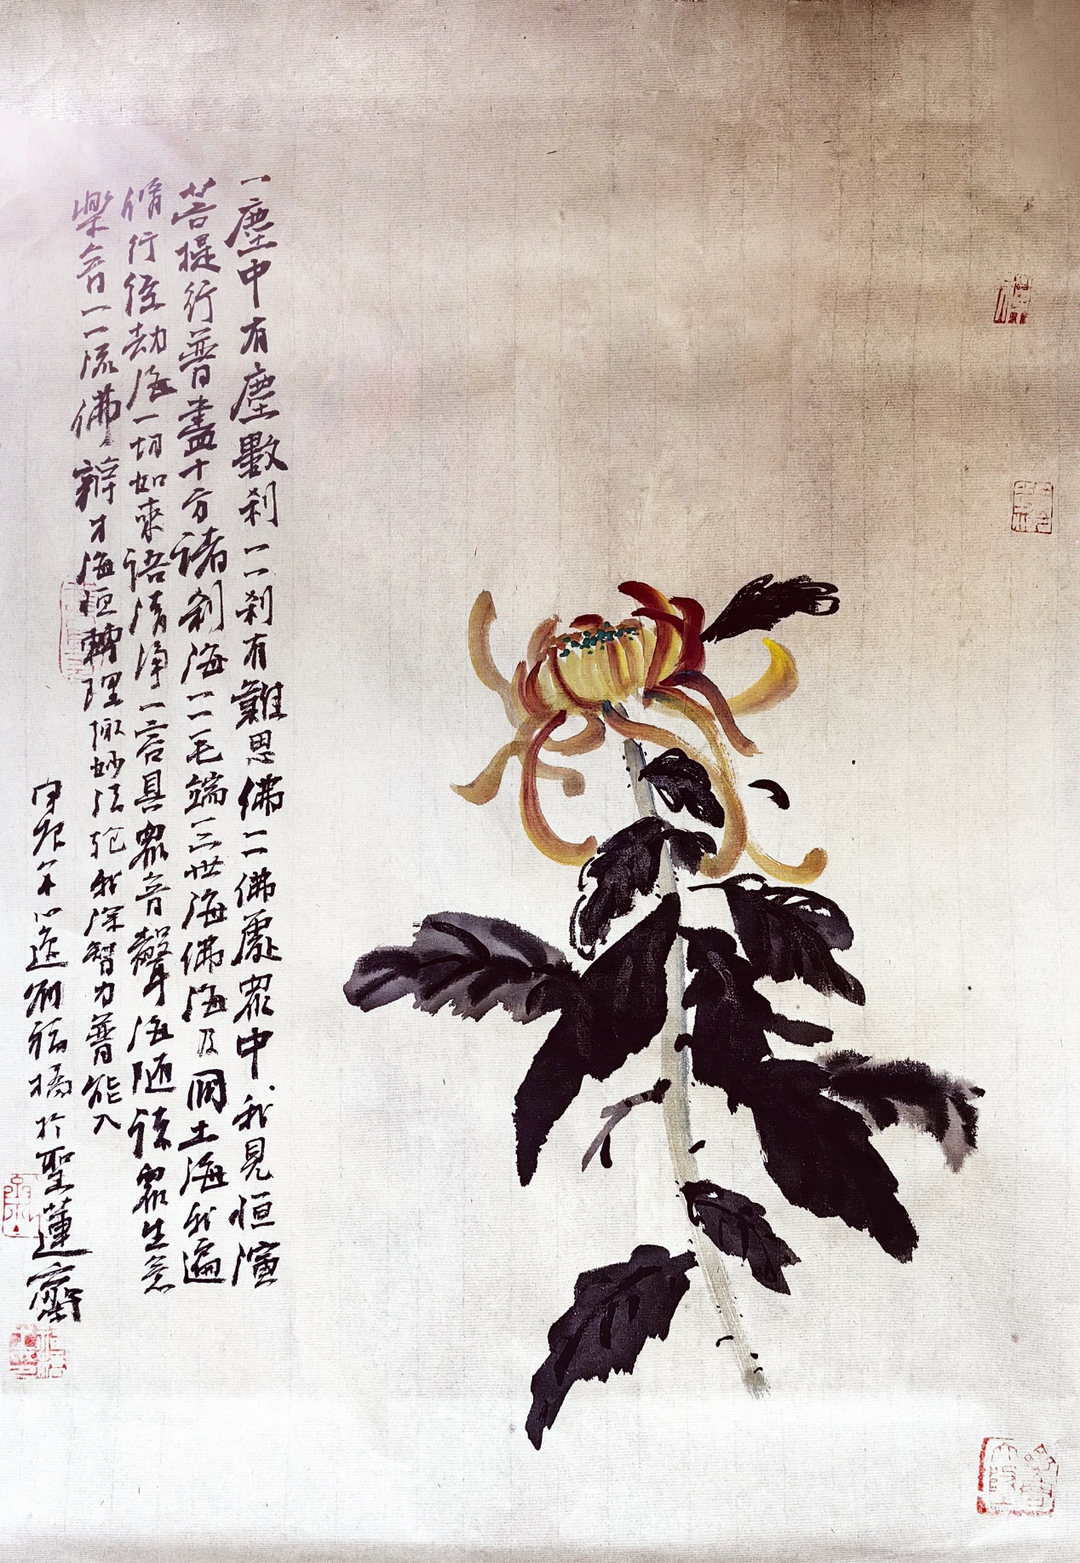 一塵中有塵數剎一一剎有難思佛一一佛處眾中我見恒演
菩提行普盡十方諸剎海一一毛端三世海佛海及國土海我遍
脩行經劫海一切如來語清淨一言具眾音聲海隨諸眾生意
樂音一一流佛辯才海恒轉理趣妙法輪我深智力普能入
甲辰年於聖蓮齋